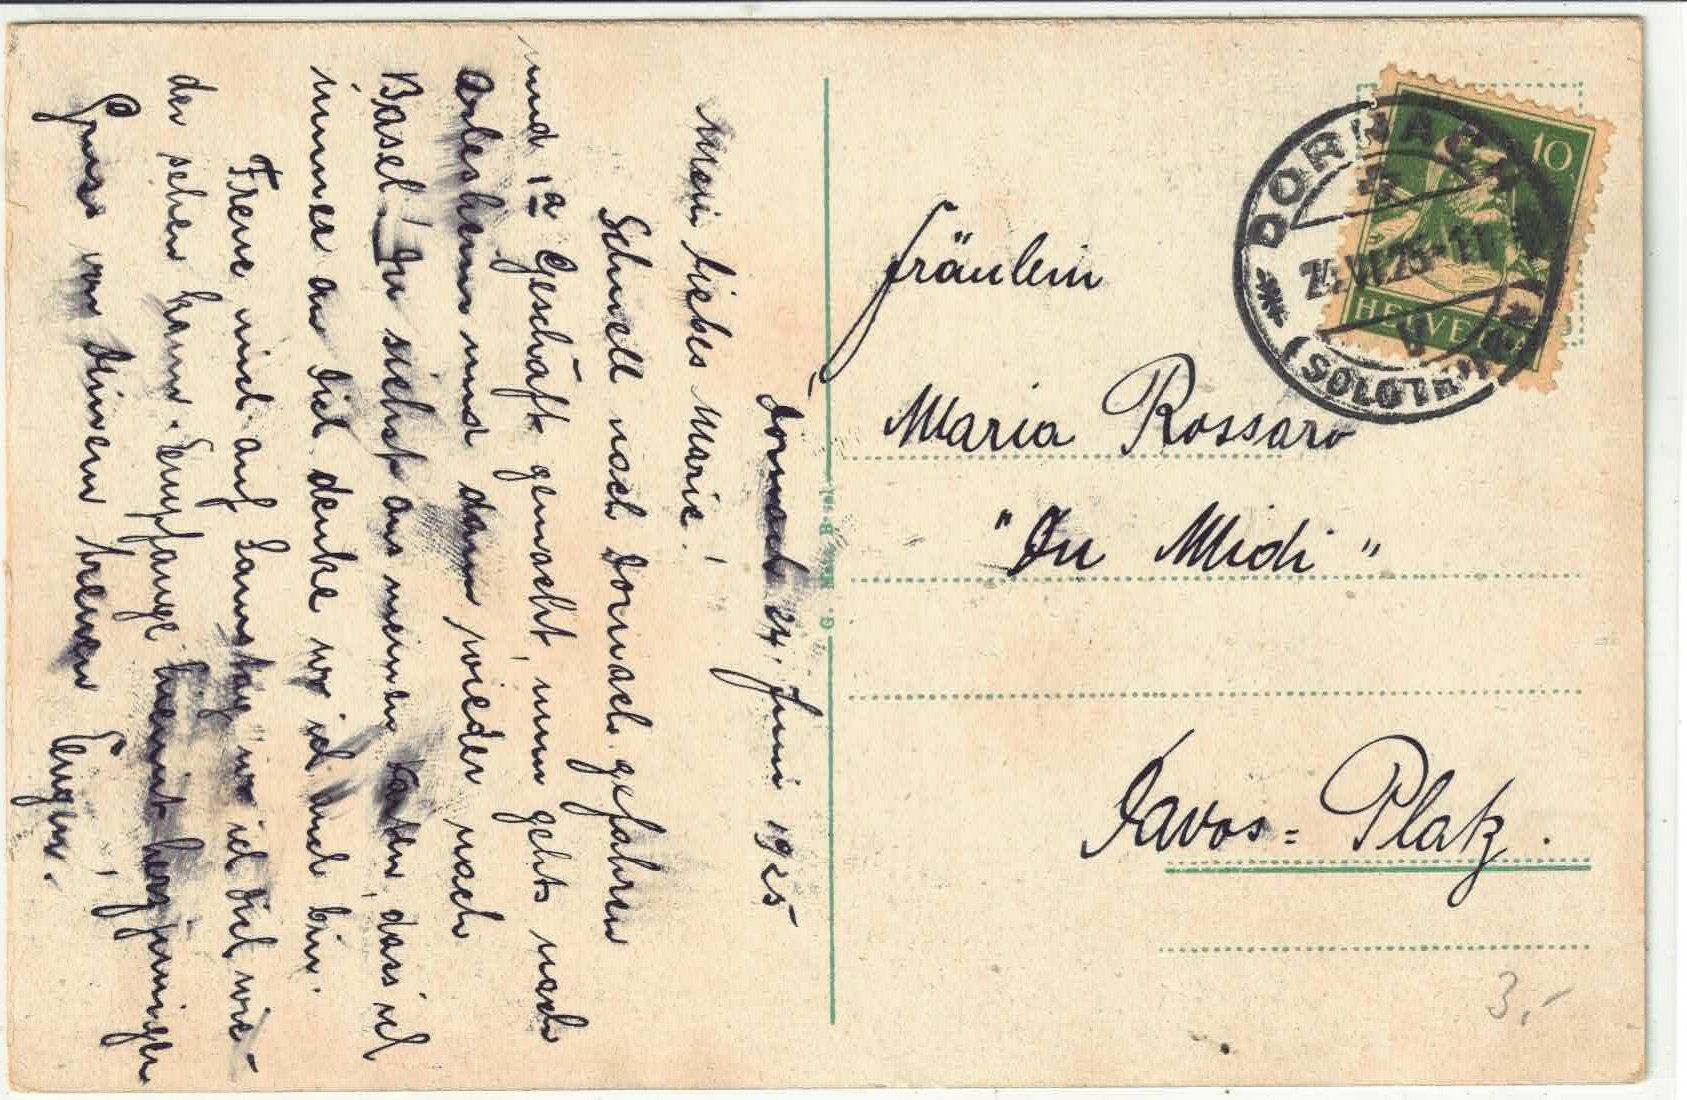 Dornach 24. Juni 1925
Mein liebes Marie!
Schnell nach Dornach gefahren
und 1a Geschäft gemacht, nun gehts nach
Arlesheim und dann wieder nach
Basel! Du siehst aus meinen Karten, dass ich
immer an Dich denke wo ich auch bin.
Freue mich auf Samstag wo ich Dich wie-
der sehen kann. Empfange hiemit herzinnigen
Gruss von Deinem treuen Eugen.
Fräulein
Maria Rossaro
"Du Midi"
Davos=Platz.
DORNACH
VI.25-11
(SOLOTH
10
HELVETIA
3.-